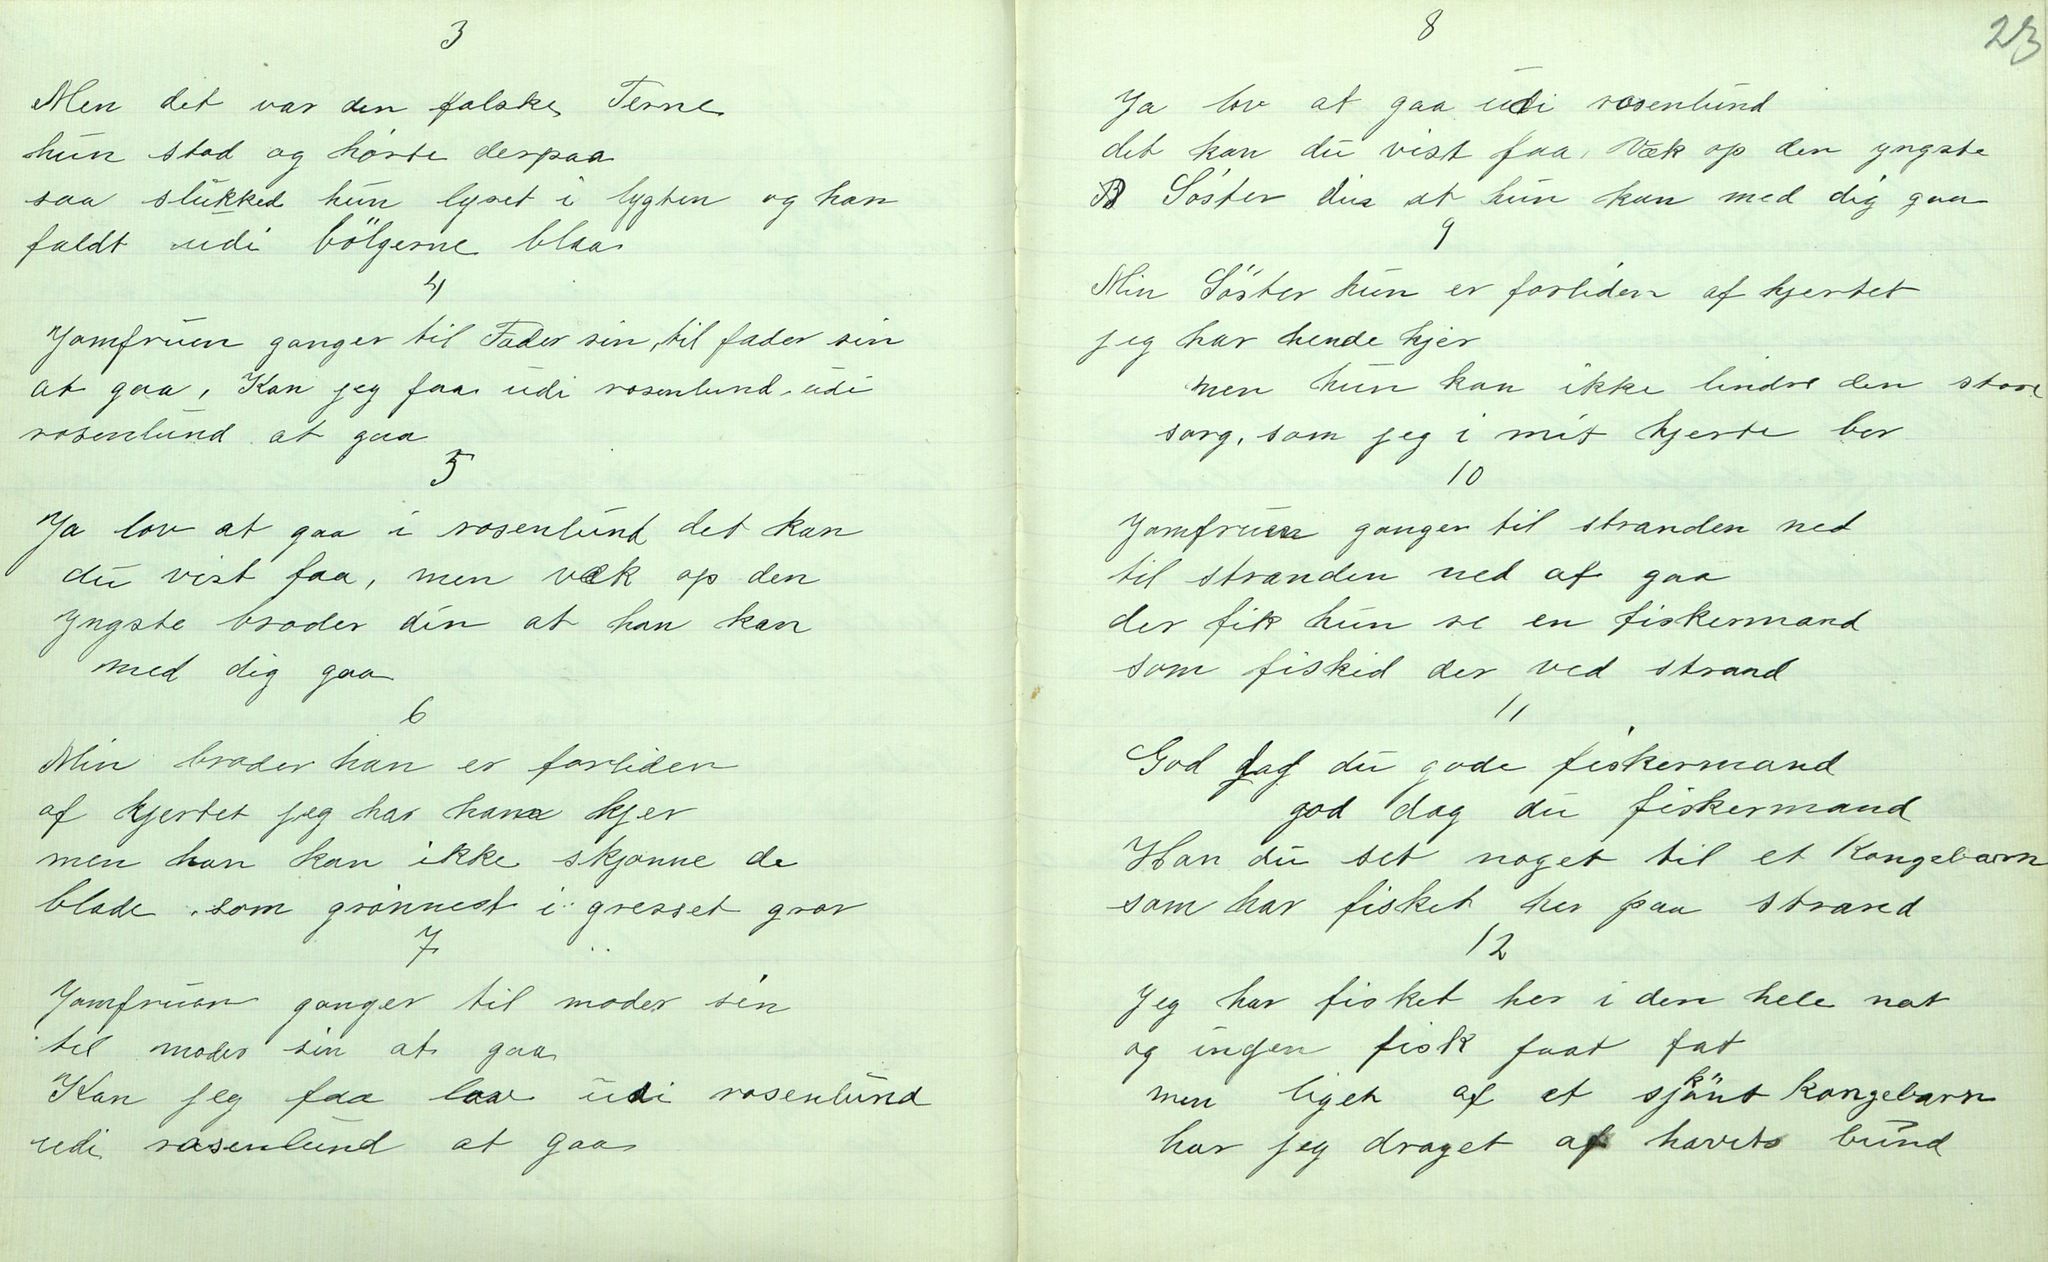 3
Men det var den falske Terne
hun stod og hørte derpaa
saa slukked hun lyset i lygten og han
faldt udi bölgerne blaa
4
Jomfruen ganger til Fader sin, til fader sin
at gaa, Kan jeg faa udi rosenlund udi
rosenlund at gaa
5
Ja lov at gaa i rosenlund det kan
du vist faa, men væk op den
yngste broder din at han kan
med dig gaa
6
Min broder han er forliden
af hjertet jeg har ham kjer
men han kan ikke skjønne de
blade som grönnest i gresset gror
7
Jomfruen ganger til moder sin
til moder sin at gaa
Kan jeg faa lov udi rosenlund
udi rosenlund at gaa
23
8
Ja lov at gaa udi rosenlund
det kan du vist faa, Væk op den yngste
Söster din at hun kan med dig gaa
9
Min Söster hun er forliden af hjertet
jeg har hende kjer
men hun kan ikke lindre den store
sorg, som jeg i mit hjerte ber
10
Jomfruen ganger til stranden ned
til stranden ned at gaa
der fik hun se en fiskermand
som fisked der ved strand
11
God dag du gode fiskermand
god dag du fiskermand
Har du set noget til et Kongebarn
som har fisket her paa strand
12
Jeg har fisket her i den hele nat
og ingen fisk faat fat
men liget af et skjönt kongebarn
har jeg draget af havets bund